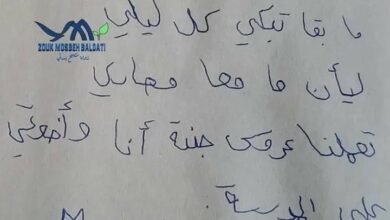 ZOUK MOSBEH BALDATI
ما بقا تبكي كل ليلي
ليأن ما معا مصاري
تعملنا عروس جبنة أنا وأخوتي
على المدرسة.